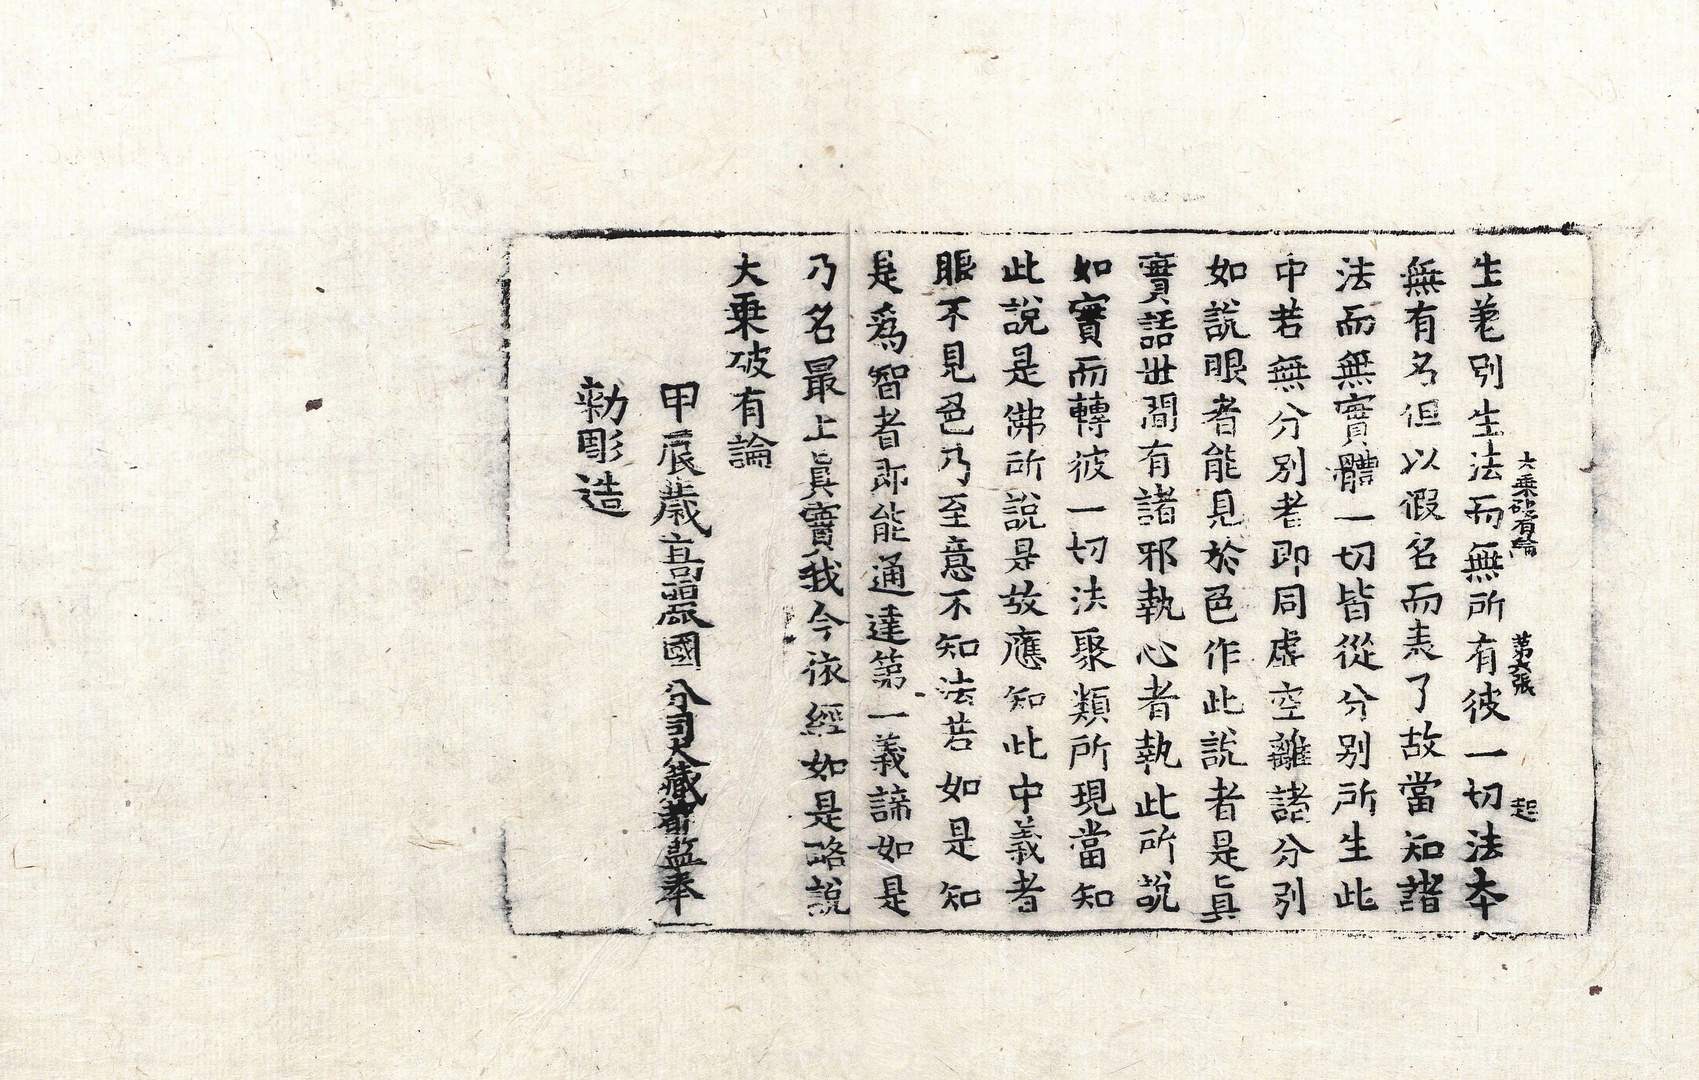 大乘破有論　第六張　起
生差別生法而無所有彼一切法本
無有名但以假名而表了故當知諸
法而無實體一切皆從分別所生此
中若無分別者即同虛空離諸分別
如說眼者能見於色作此說者是眞
實語世間有諸邪執心者執此所說
如實而轉彼一切法聚類所現當知
此說是佛所說是故應知此中義者
眼不見色乃至意不知法若如是知
是爲智者即能通達第一義諦如是
乃名最上眞實我今依經如是略說
大乘破有論
甲辰歲高麗國分司大藏都監奉
勅彫造